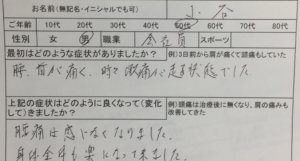 お名前(無記名・イニシャルでも可) 小谷
ご年齢 10代 20代 30代 40代 50代 60代 70代
性別 女 男 職業 会社員 スポーツ
最初はどのような症状がありましたか? 例)3日前から肩が痛くて頭痛もしていた
腰、首が痛く、時々激痛が走る状態でした
上記の症状はどのように良くなって(変化して)きましたか? 例)頭痛は治療後に無くなり、肩の痛みも改善してきた
腰痛は感じなくなりました。
身体全体も楽になって来ました。